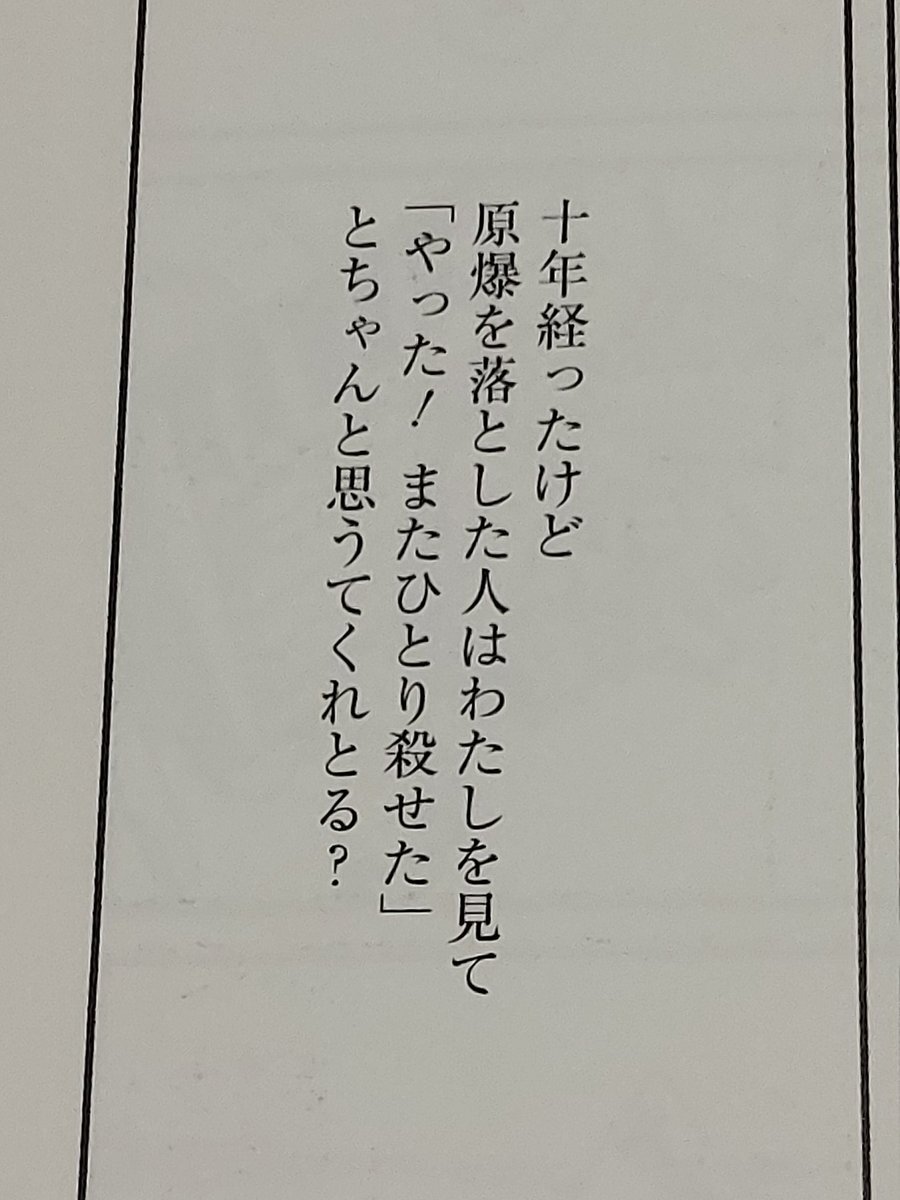 十年経ったけど
原爆を落とした人はわたしを見て
「やった！ またひとり殺せた」
とちゃんと思うてくれとる？